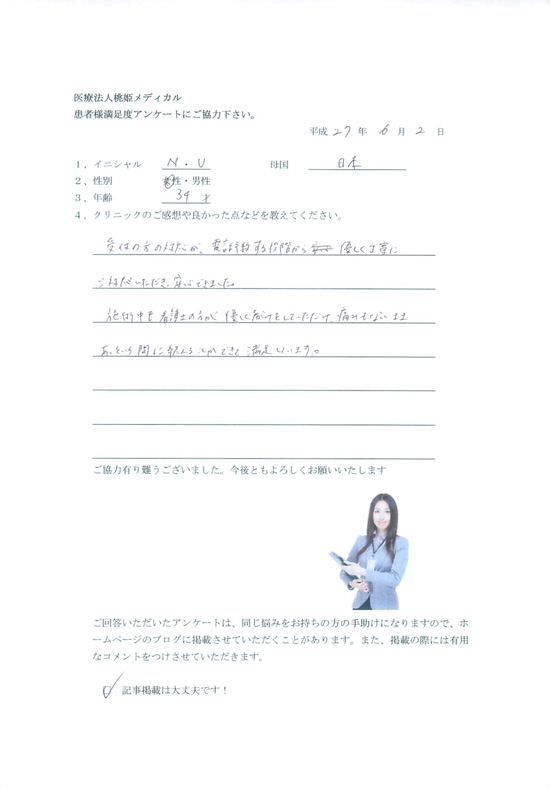 医療法人桃姫メディカル
患者様満足度アンケートにご協力下さい。
平成 27 年 6 月 2 日
1、イニシャル N・U 母国 日本
2、性別 女性・男性
3、年齢 34 才
4、クリニックのご感想や良かった点などを教えてください。
受付の方の対応が、電話予約する段階から 優しく丁寧に
ご対応いただき、安心できました。
施術中も看護士の方が優しく声がけをしていただけ、痛みもないまま
あっという間に終えることができて満足しています。
ご協力有り難うございました。今後ともよろしくお願いいたします
ご回答いただいたアンケートは、同じ悩みをお持ちの方の手助けになりますので、ホ
ームページのブログに掲載させていただくことがあります。また、掲載の際には有用
なコメントをつけさせていただきます。
記事掲載は大丈夫です！